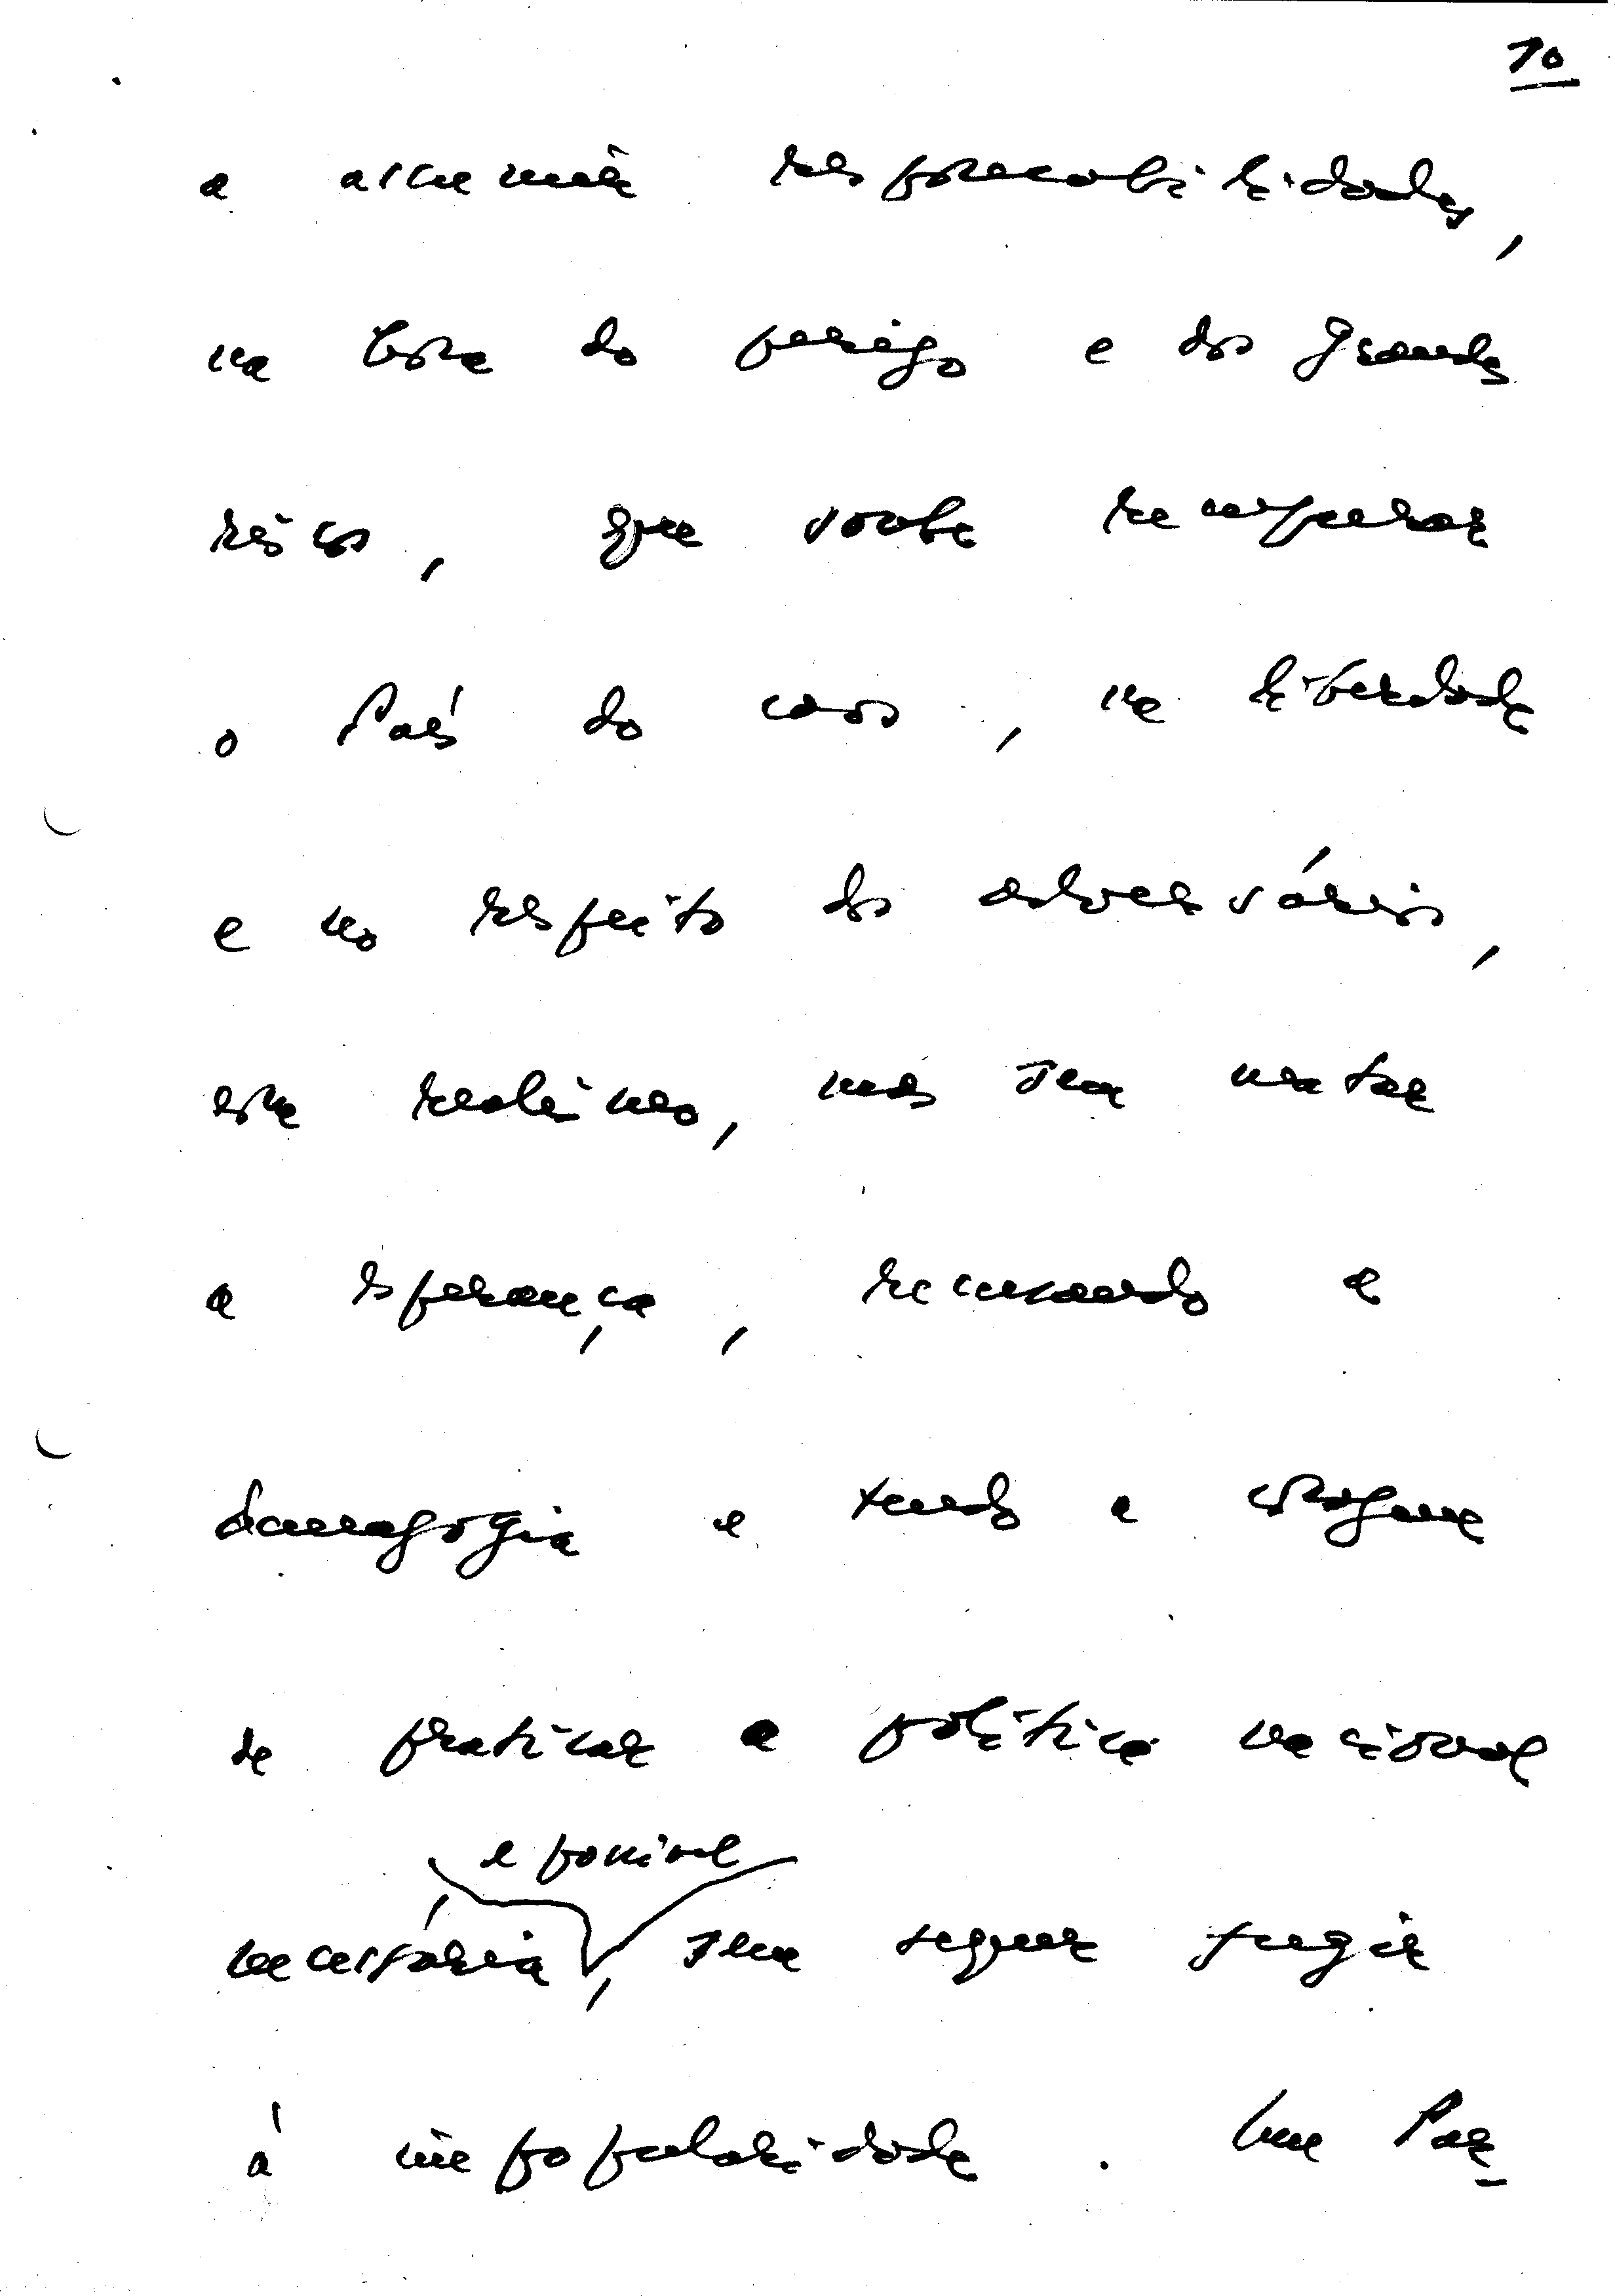 10
a assumir responsabilidades,
na hora do perigo e dos grandes
riscos, que soube recuperar
o País do caos, na liberdade
e no respeito dos adversários,
com realismo, mas sem matar
a esperança, recusando a
demagogia e tendo a coragem
de praticar a política nacional
e possível
necessária, sem sequer fugir
á impopularidade. Um Par_